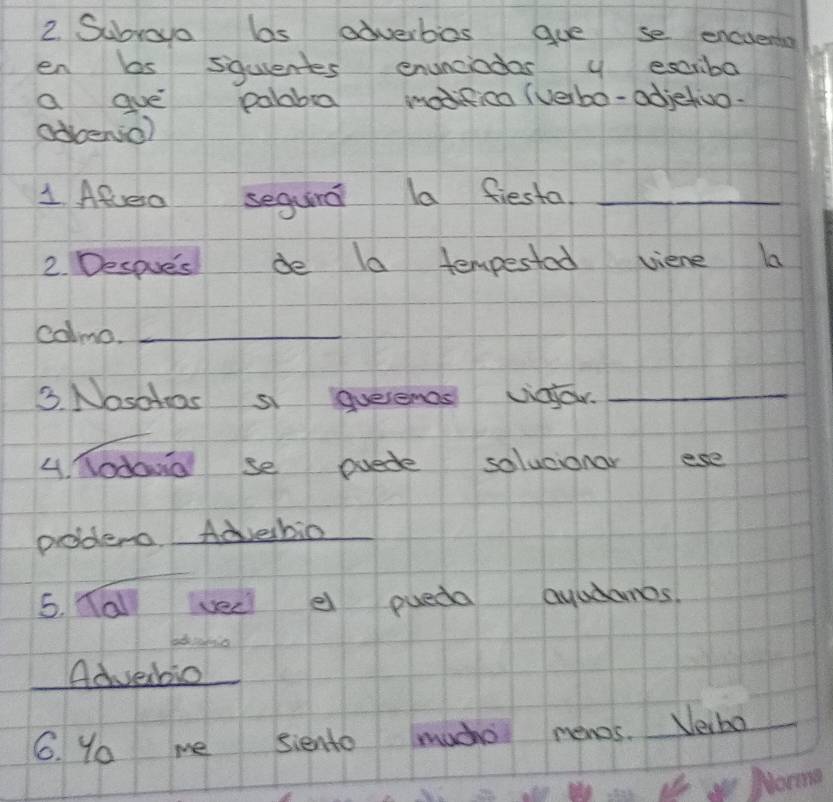 2. Subraya los adverbios que se encuentra
en los siguientes enunciados y escriba
a qué palabra modifica (verbo-adjetivo-
adverbio)
1 Afuera seguirá la fiesta.
2. Después de la tempestad viene la
calma.
3. Nosotros si queremos viajar.
4. Todavía se puede solucionar ese
problema Adverbio
5. Tal vez el pueda ayudarnos.
Adverbio
6. Yo me siento mucho menos. Verbo
Norma